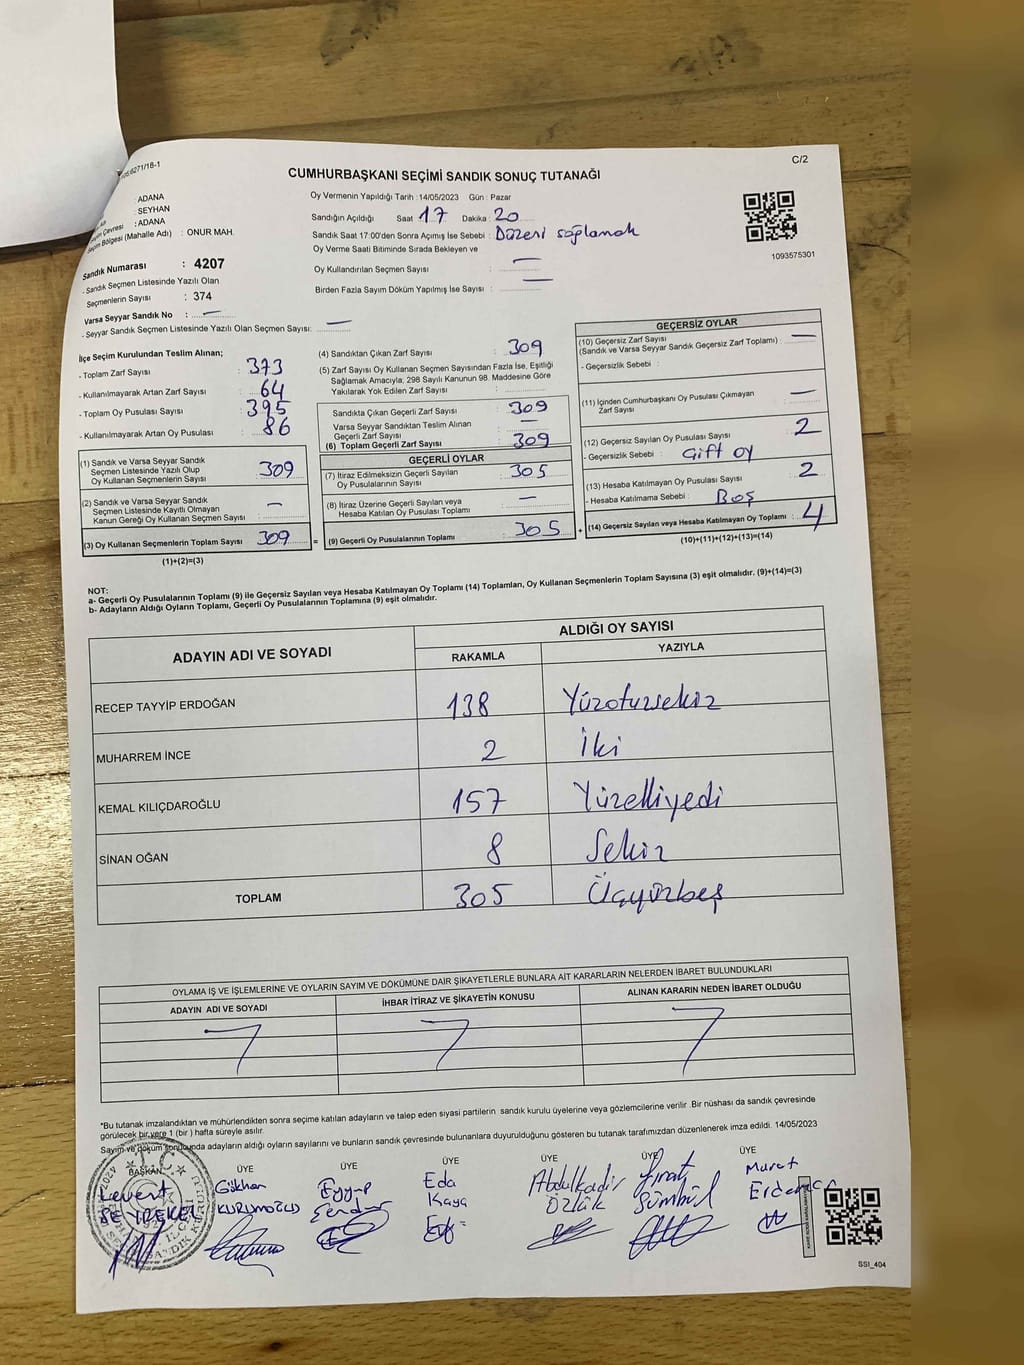 C/2
CUMHURBAŞKANI SEÇİMİ SANDIK SONUÇ TUTANAĞI
: ADANA
: SEYHAN
: ADANA
Seçim Bölgesi (Mahalle Adı) : ONUR MAH.
Sandık Numarası : 4207
- Sandık Seçmen Listesinde Yazılı Olan
Seçmenlerin Sayısı : 374
Varsa Seyyar Sandık No : —
- Seyyar Sandık Seçmen Listesinde Yazılı Olan Seçmen Sayısı: —
Oy Vermenin Yapıldığı Tarih : 14/05/2023 Gün : Pazar
Sandığın Açıldığı Saat 17 Dakika : 20
Sandık Saat 17:00'den Sonra Açımış İse Sebebi : Düzeni sağlamak
Oy Verme Saati Bitiminde Sırada Bekleyen ve
Oy Kullandırılan Seçmen Sayısı : —
Birden Fazla Sayım Döküm Yapılmış İse Sayısı : —
1093575301
İlçe Seçim Kurulundan Teslim Alınan;
- Toplam Zarf Sayısı : 373
- Kullanılmayarak Artan Zarf Sayısı : 64
- Toplam Oy Pusulası Sayısı : 395
- Kullanılmayarak Artan Oy Pusulası : 86
(1) Sandık ve Varsa Seyyar Sandık
Seçmen Listesinde Yazılı Olup
Oy Kullanan Seçmenlerin Sayısı : 309
(2) Sandık ve Varsa Seyyar Sandık
Seçmen Listesinde Kayıtlı Olmayan
Kanun Gereği Oy Kullanan Seçmen Sayısı : —
(3) Oy Kullanan Seçmenlerin Toplam Sayısı : 309 =
(1)+(2)=(3)
(4) Sandıktan Çıkan Zarf Sayısı : 309
(5) Zarf Sayısı Oy Kullanan Seçmen Sayısından Fazla İse, Eşitliği
Sağlamak Amacıyla; 298 Sayılı Kanunun 98. Maddesine Göre
Yakılarak Yok Edilen Zarf Sayısı :
Sandıkta Çıkan Geçerli Zarf Sayısı : 309
Varsa Seyyar Sandıktan Teslim Alınan
Geçerli Zarf Sayısı : —
(6) Toplam Geçerli Zarf Sayısı : 309
GEÇERLİ OYLAR
(7) İtiraz Edilmeksizin Geçerli Sayılan
Oy Pusulalarının Sayısı : 305
(8) İtiraz Üzerine Geçerli Sayılan veya
Hesaba Katılan Oy Pusulası Toplamı : —
(9) Geçerli Oy Pusulalarının Toplamı : 305 +
GEÇERSİZ OYLAR
(10) Geçersiz Zarf Sayısı
(Sandık ve Varsa Seyyar Sandık Geçersiz Zarf Toplamı) : —
- Geçersizlik Sebebi :
(11) İçinden Cumhurbaşkanı Oy Pusulası Çıkmayan
Zarf Sayısı : —
(12) Geçersiz Sayılan Oy Pusulası Sayısı : 2
- Geçersizlik Sebebi : Çift oy
(13) Hesaba Katılmayan Oy Pusulası Sayısı : 2
- Hesaba Katılmama Sebebi : Boş
(14) Geçersiz Sayılan veya Hesaba Katılmayan Oy Toplamı : 4
(10)+(11)+(12)+(13)=(14)
NOT:
a- Geçerli Oy Pusulalarının Toplamı (9) ile Geçersiz Sayılan veya Hesaba Katılmayan Oy Toplamı (14) Toplamları, Oy Kullanan Seçmenlerin Toplam Sayısına (3) eşit olmalıdır. (9)+(14)=(3)
b- Adayların Aldığı Oyların Toplamı, Geçerli Oy Pusulalarının Toplamına (9) eşit olmalıdır.
ADAYIN ADI VE SOYADI
ALDIĞI OY SAYISI
RAKAMLA YAZIYLA
RECEP TAYYİP ERDOĞAN 138 Yüzotuzsekiz
MUHARREM İNCE 2 İki
KEMAL KILIÇDAROĞLU 157 Yüzelliyedi
SİNAN OĞAN 8 Sekiz
TOPLAM 305 Üçyüzbeş
OYLAMA İŞ VE İŞLEMLERİNE VE OYLARIN SAYIM VE DÖKÜMÜNE DAİR ŞİKAYETLERLE BUNLARA AİT KARARLARIN NELERDEN İBARET BULUNDUKLARI
ADAYIN ADI VE SOYADI İHBAR İTİRAZ VE ŞİKAYETİN KONUSU ALINAN KARARIN NEDEN İBARET OLDUĞU
*Bu tutanak imzalandıktan ve mühürlendikten sonra seçime katılan adayların ve talep eden siyasi partilerin sandık kurulu üyelerine veya gözlemcilerine verilir .Bir nüshası da sandık çevresinde
görülecek bir yere 1 (bir ) hafta süreyle asılır.
Sayım ve döküm sonucunda adayların aldığı oyların sayılarını ve bunların sandık çevresinde bulunanlara duyurulduğunu gösteren bu tutanak tarafımızdan düzenlenerek imza edildi. 14/05/2023
BAŞKAN ÜYE ÜYE ÜYE ÜYE ÜYE ÜYE
Levent Gökhan Eyyüp Eda Abdulkadir Fırat Murat
KURUMOĞLU Kaya ÖZLÜK SÜMBÜL
SSI_404